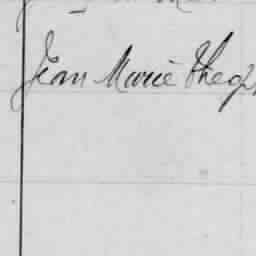 Jean Marie Theo